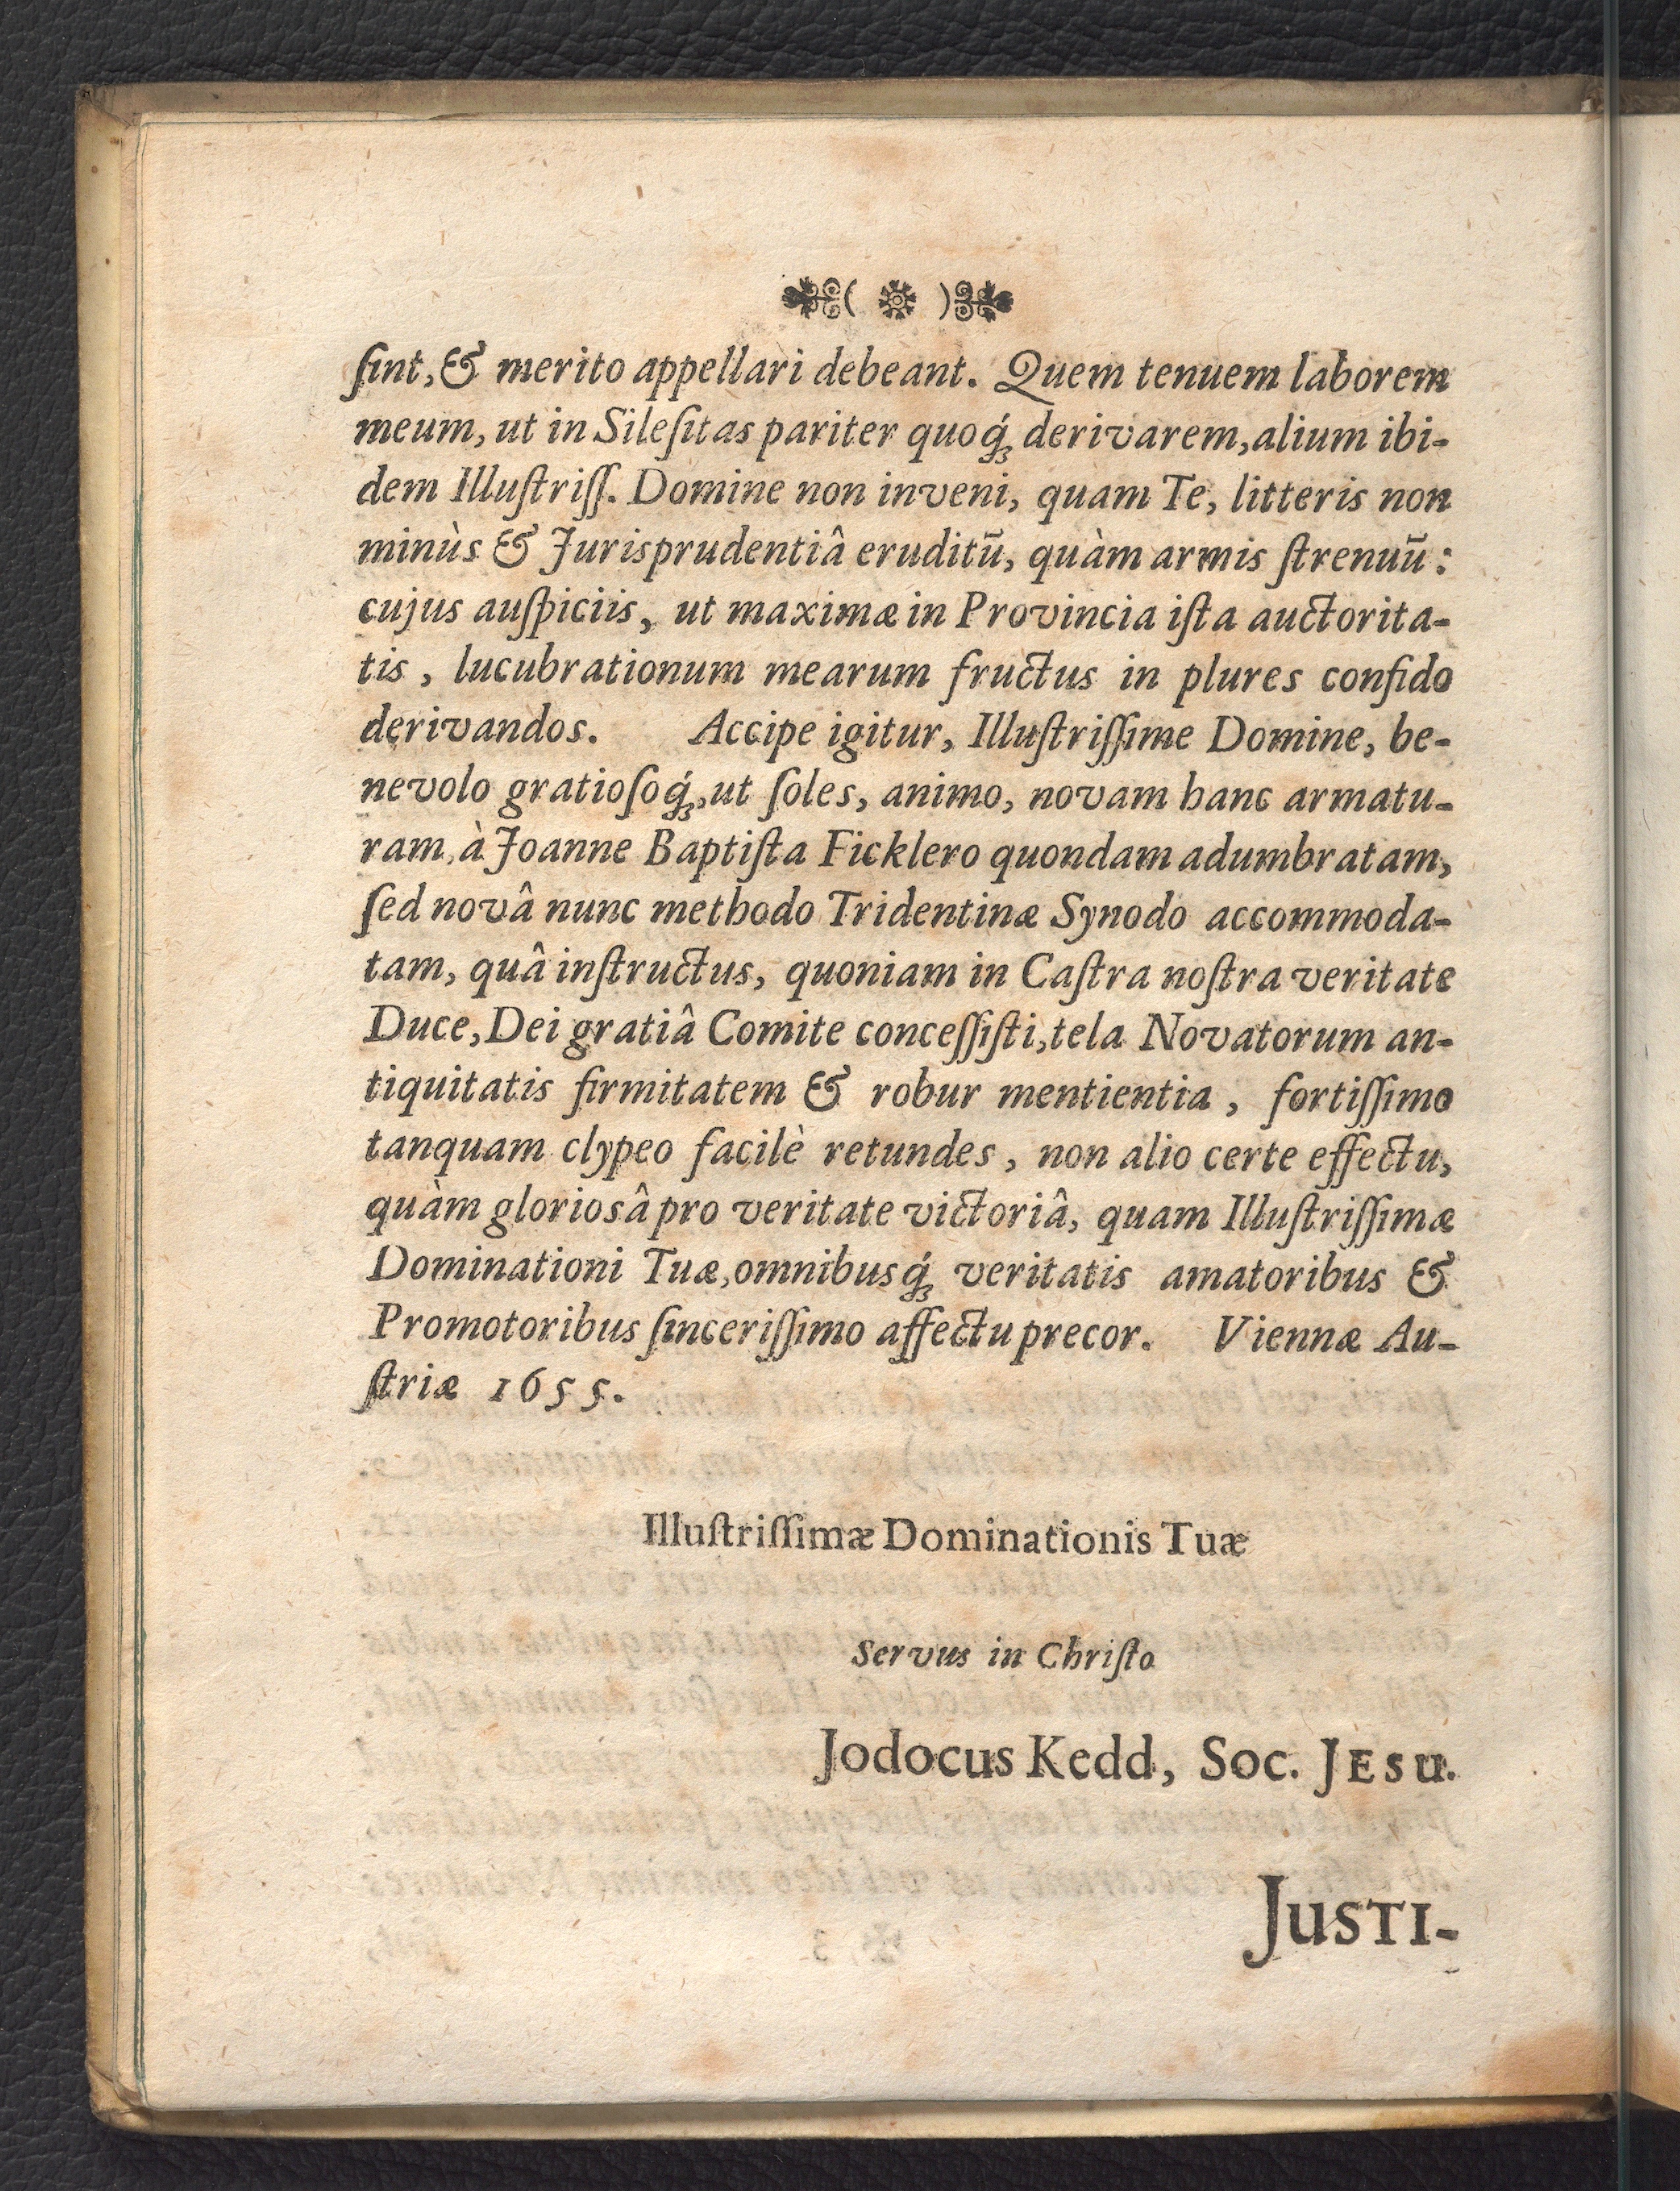 ſint, & merito appellari debeant. Quem tenuem laborem
meum, ut in Sileſitas pariter quoq́ꝫ derivarem, alium ibi-
dem Illuſtriſſ. Domine non inveni, quam Te, litteris non
minùs & Jurisprudentiâ eruditū, quàm armis ſtrenuū:
cujus auſpiciis, ut maximæ in Provincia iſta auctorita-
tis, lucubrationum mearum fructus in plures confido
derivandos. Accipe igitur, Illuſtriſſime Domine, be-
nevolo gratioſoq́ꝫ, ut ſoles, animo, novam hanc armatu-
ram, à Joanne Baptiſta Ficklero quondam adumbratam,
ſed novâ nunc methodo Tridentinæ Synodo accommoda-
tam, quâ inſtructus, quoniam in Caſtra noſtra veritate
Duce, Dei gratiâ Comite conceſſiſti, tela Novatorum an-
tiquitatis firmitatem & robur mentientia, fortiſſimo
tanquam clypeo facilè retundes, non alio certe effectu,
quàm gloriosâ pro veritate victoriâ, quam Illuſtriſſimæ
Dominationi Tuæ, omnibusq́ꝫ veritatis amatoribus &
Promotoribus ſinceriſſimo affectu precor. Viennæ Au-
ſtriæ 1655.
Illuſtriſſimæ Dominationis Tuæ
Servus in Chriſto
Jodocus Kedd, Soc. JESU.
JUSTI-